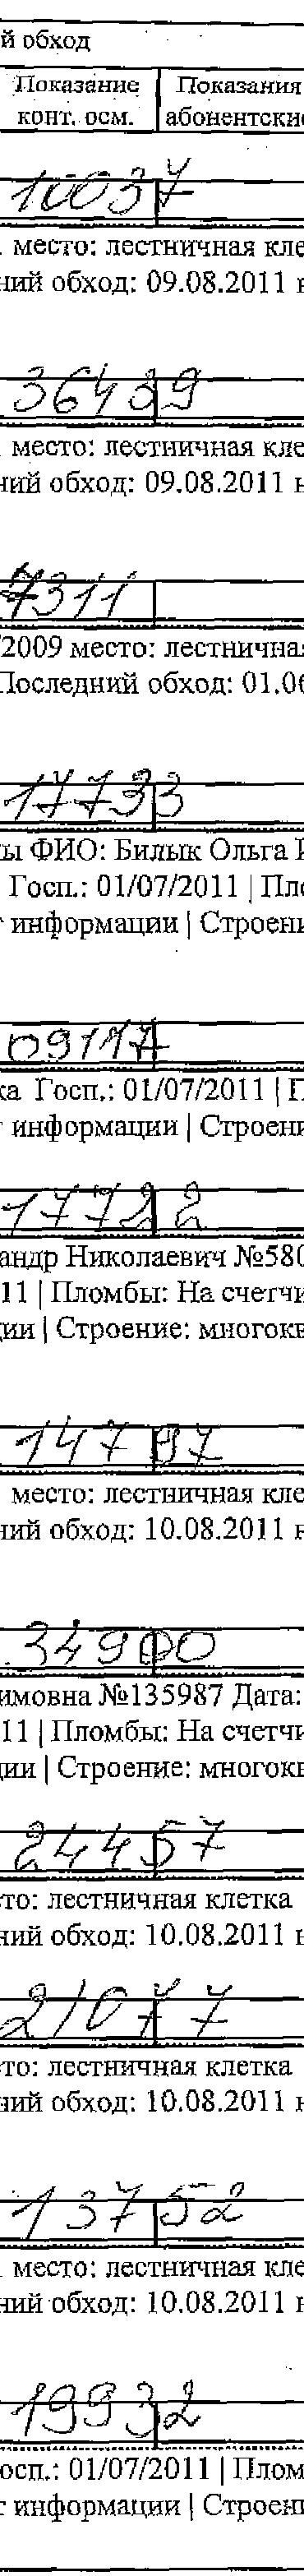 й обход
Показание Показания
конт. осм. абонентские
10037
место: лестничная кле
ний обход: 09.08.2011 н
36439
место: лестничная кле
ний обход: 09.08.2011 н
7311
/2009 место: лестничная
Последний обход: 01.06
17733
ы ФИО: Билык Ольга И
Госп.: 01/07/2011 | Пло
информации | Строени
09117
ка Госп.: 01/07/2011 | П
информации | Строени
17722
андр Николаевич №580
11 | Пломбы: На счетчи
ции | Строение: многокв
14797
место: лестничная кле
ний обход: 10.08.2011 н
34900
имовна №135987 Дата:
11 | Пломбы: На счетчи
ции | Строение: многокв
24457
то: лестничная клетка
ний обход: 10.08.2011 н
21077
то: лестничная клетка
ний обход: 10.08.2011 н
13752
место: лестничная кле
ний обход: 10.08.2011 н
19932
осп.: 01/07/2011 | Плом
т информации | Строени